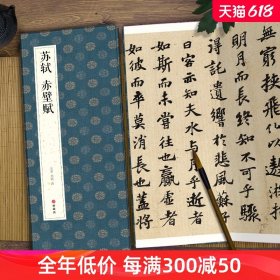 天猫618
苏轼 赤壁赋
無窮挾飛
明月而長終知不可乎驟
得託遺響於悲風蘇子
客亦知夫水與月乎逝者
如斯而未嘗往也贏虛者
如彼而卒莫消長也盖將
全年低价 每满300减50